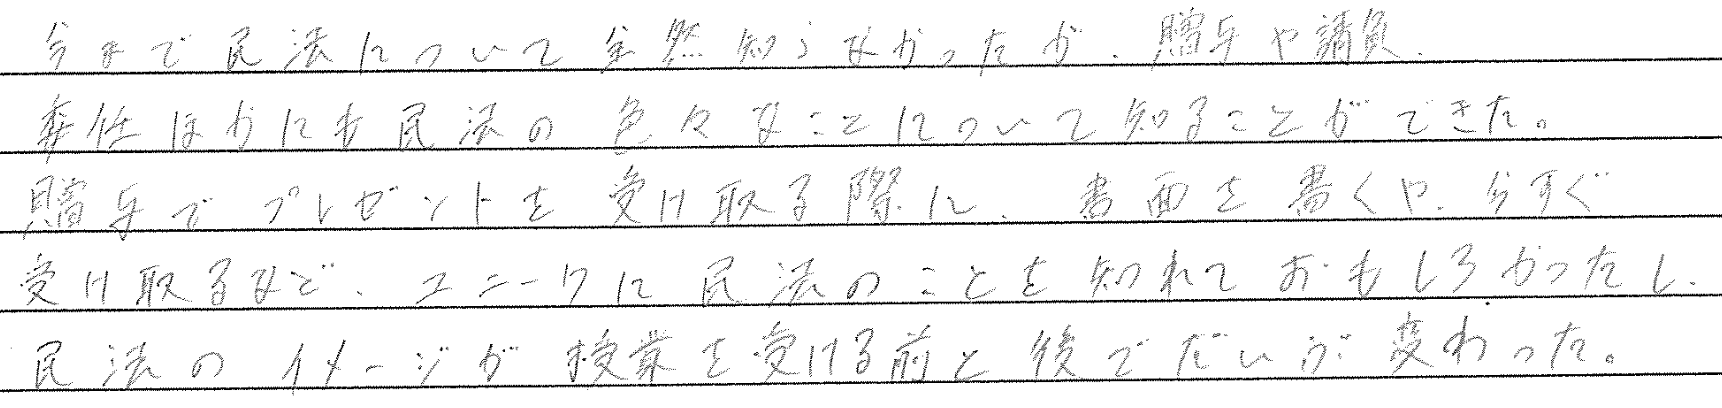 今まで民法について全然知らなかったが、贈与や請負、
委任ほかにも民法の色々なことについて知ることができた。
贈与でプレゼントを受け取る際に、書面を書くや、今すぐ
受け取るなど、ユニークに民法のことを知れておもしろかったし、
民法のイメージが授業を受ける前と後でだいぶ変わった。